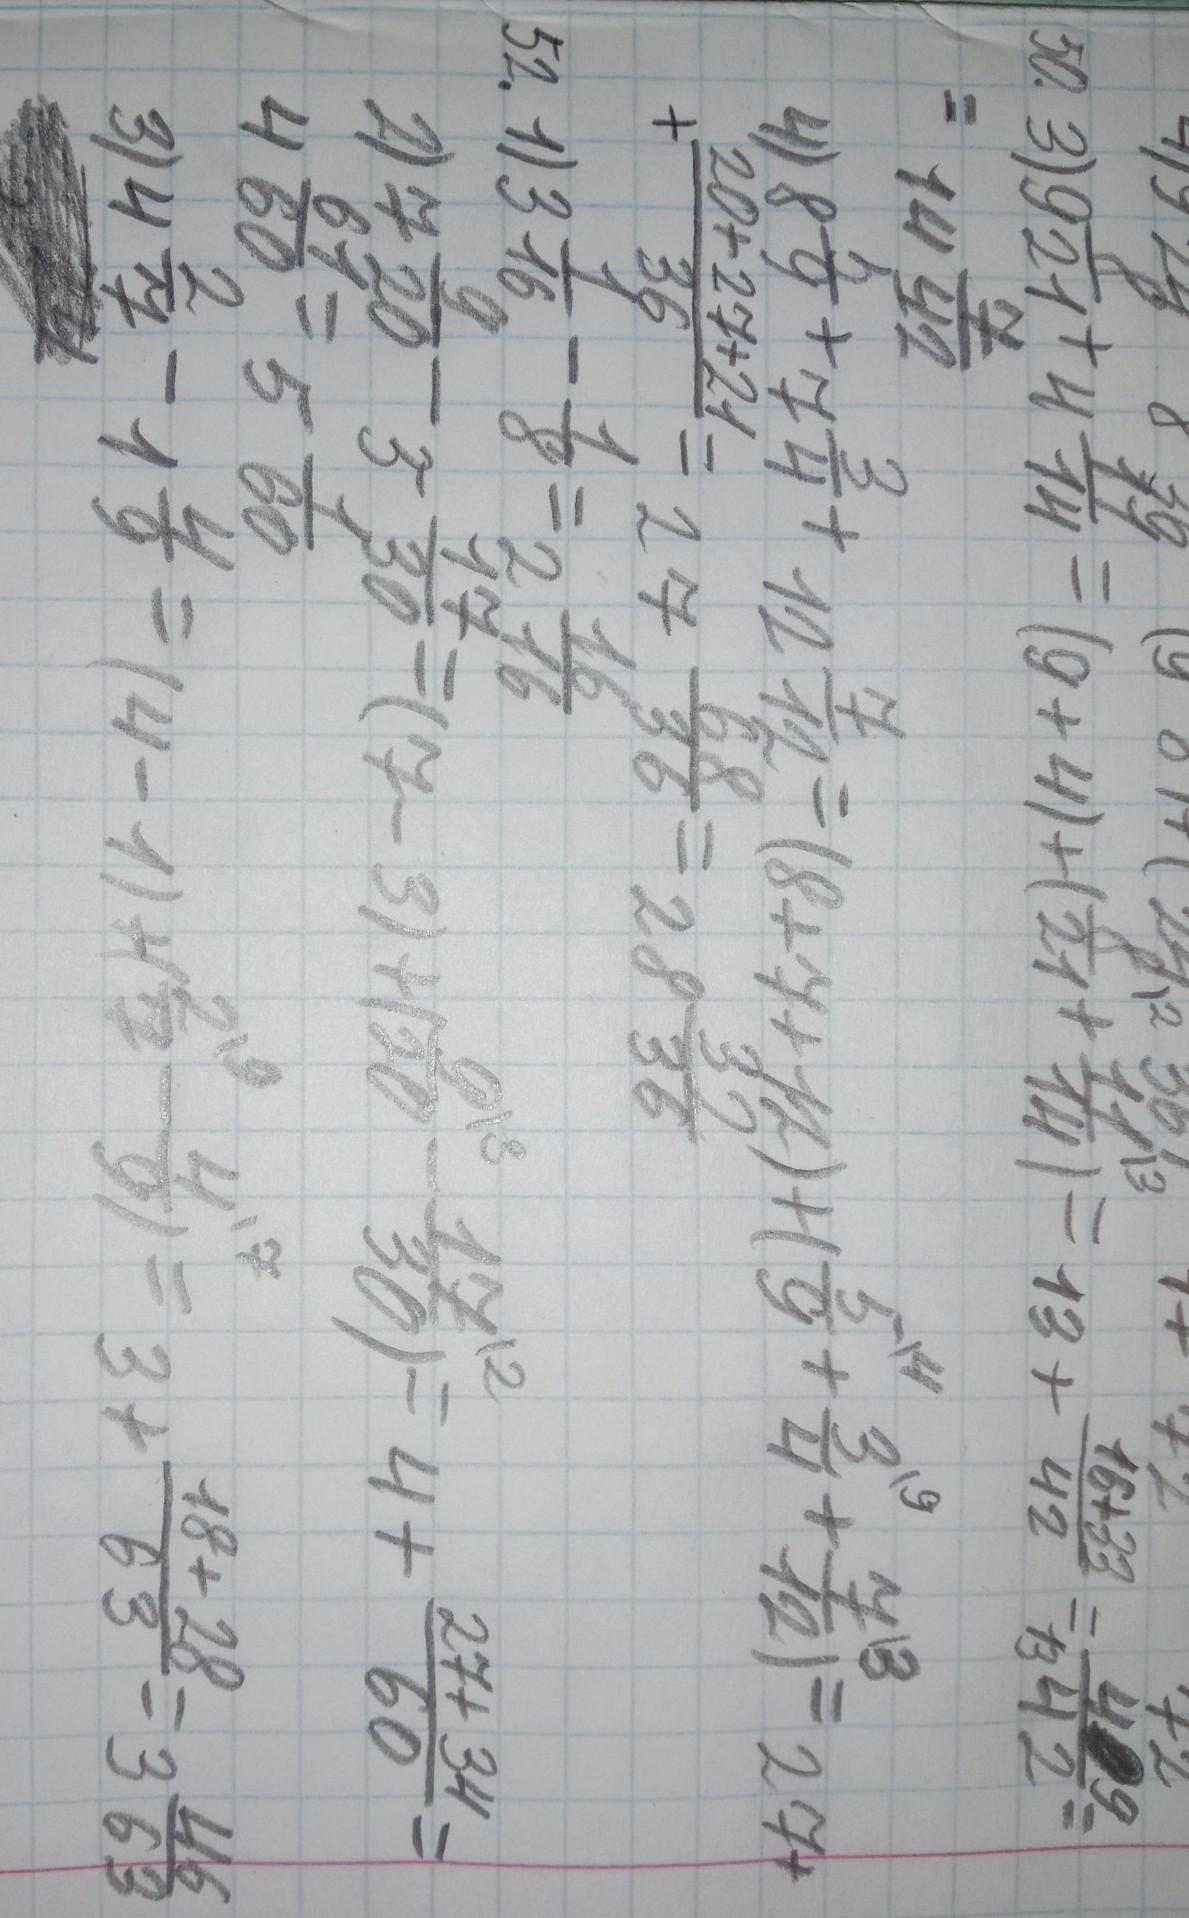 50. 3) 9 8/21 + 4 11/14 = (9 + 4) + (8/21\2 + 11/14\3) = 13 + 16+33/42 = 13 49/42 =
= 14 7/42
4) 8 5/9 + 7 3/4 + 12 7/12 = (8 + 7 + 12) + (5/9\4 + 3/4\9 + 7/12\3) = 27 +
+ 20+27+21/36 = 27 68/36 = 28 32/36
52. 1) 3 1/16 - 1/8 = 2 16/16
2) 7 9/20 - 3 17/30 = (7 - 3) + (9/20\3 - 17/30\2) = 4 + 27+34/60 =
4 61/60 = 5 1/60
3) 4 2/7 - 1 4/9 = (4 - 1) + (2/7\9 - 4/9\7) = 3 + 18+28/63 = 3 46/63